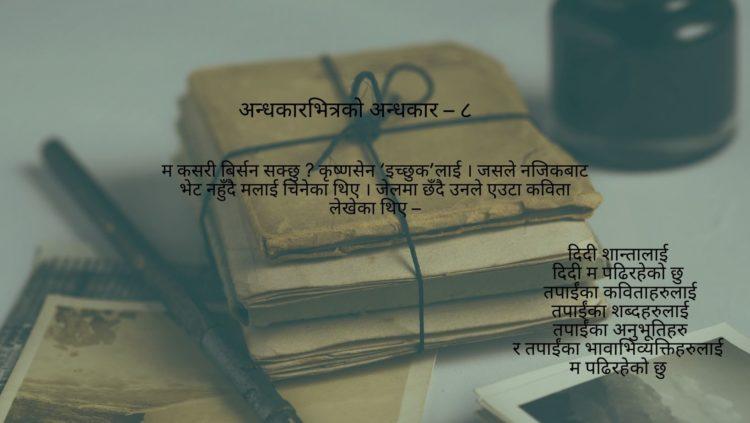 अन्धकारभित्रको अन्धकार – ८
म कसरी बिर्सन सक्छु ? कृष्णसेन ‘इच्छुक’लाई । जसले नजिकबाट
भेट नहुँदै मलाई चिनेका थिए । जेलमा छँदै उनले एउटा कविता
लेखेका थिए –
दिदी शान्तालाई
दिदी म पढिरहेको छु
तपाईंका कविताहरुलाई
तपाईंका शब्दहरुलाई
तपाईंका अनुभूतिहरु
र तपाईंका भावाभिव्यक्तिहरुलाई
म पढिरहेको छु